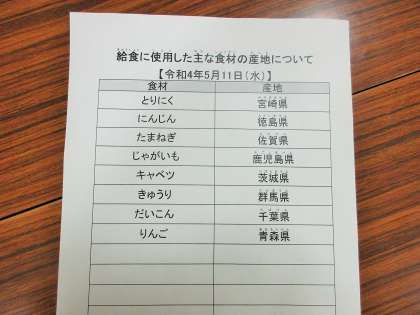 給食に使用した主な食材の産地について
【令和4年5月11日(水)】
食材 産地
とりにく 宮崎県
にんじん 徳島県
たまねぎ 佐賀県
じゃがいも 鹿児島県
キャベツ 茨城県
きゅうり 群馬県
だいこん 千葉県
りんご 青森県